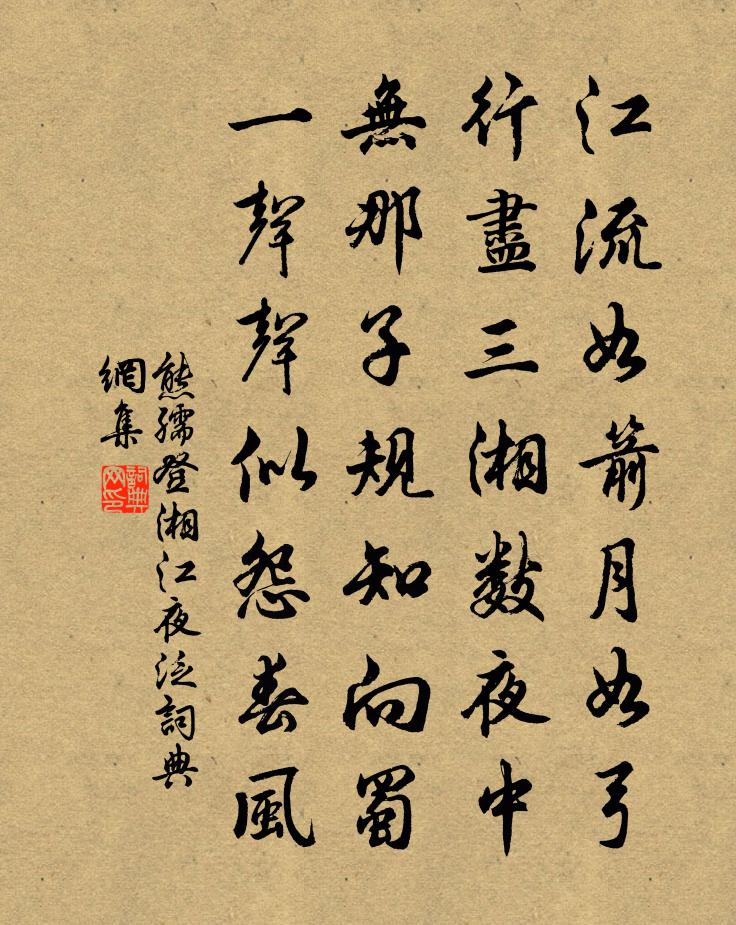 江流如箭月如弓
行盡三湘數夜中
無那子規知向蜀
一聲聲似怨春風
熊孺登湘江夜泛詞典
網集
詞典
网印